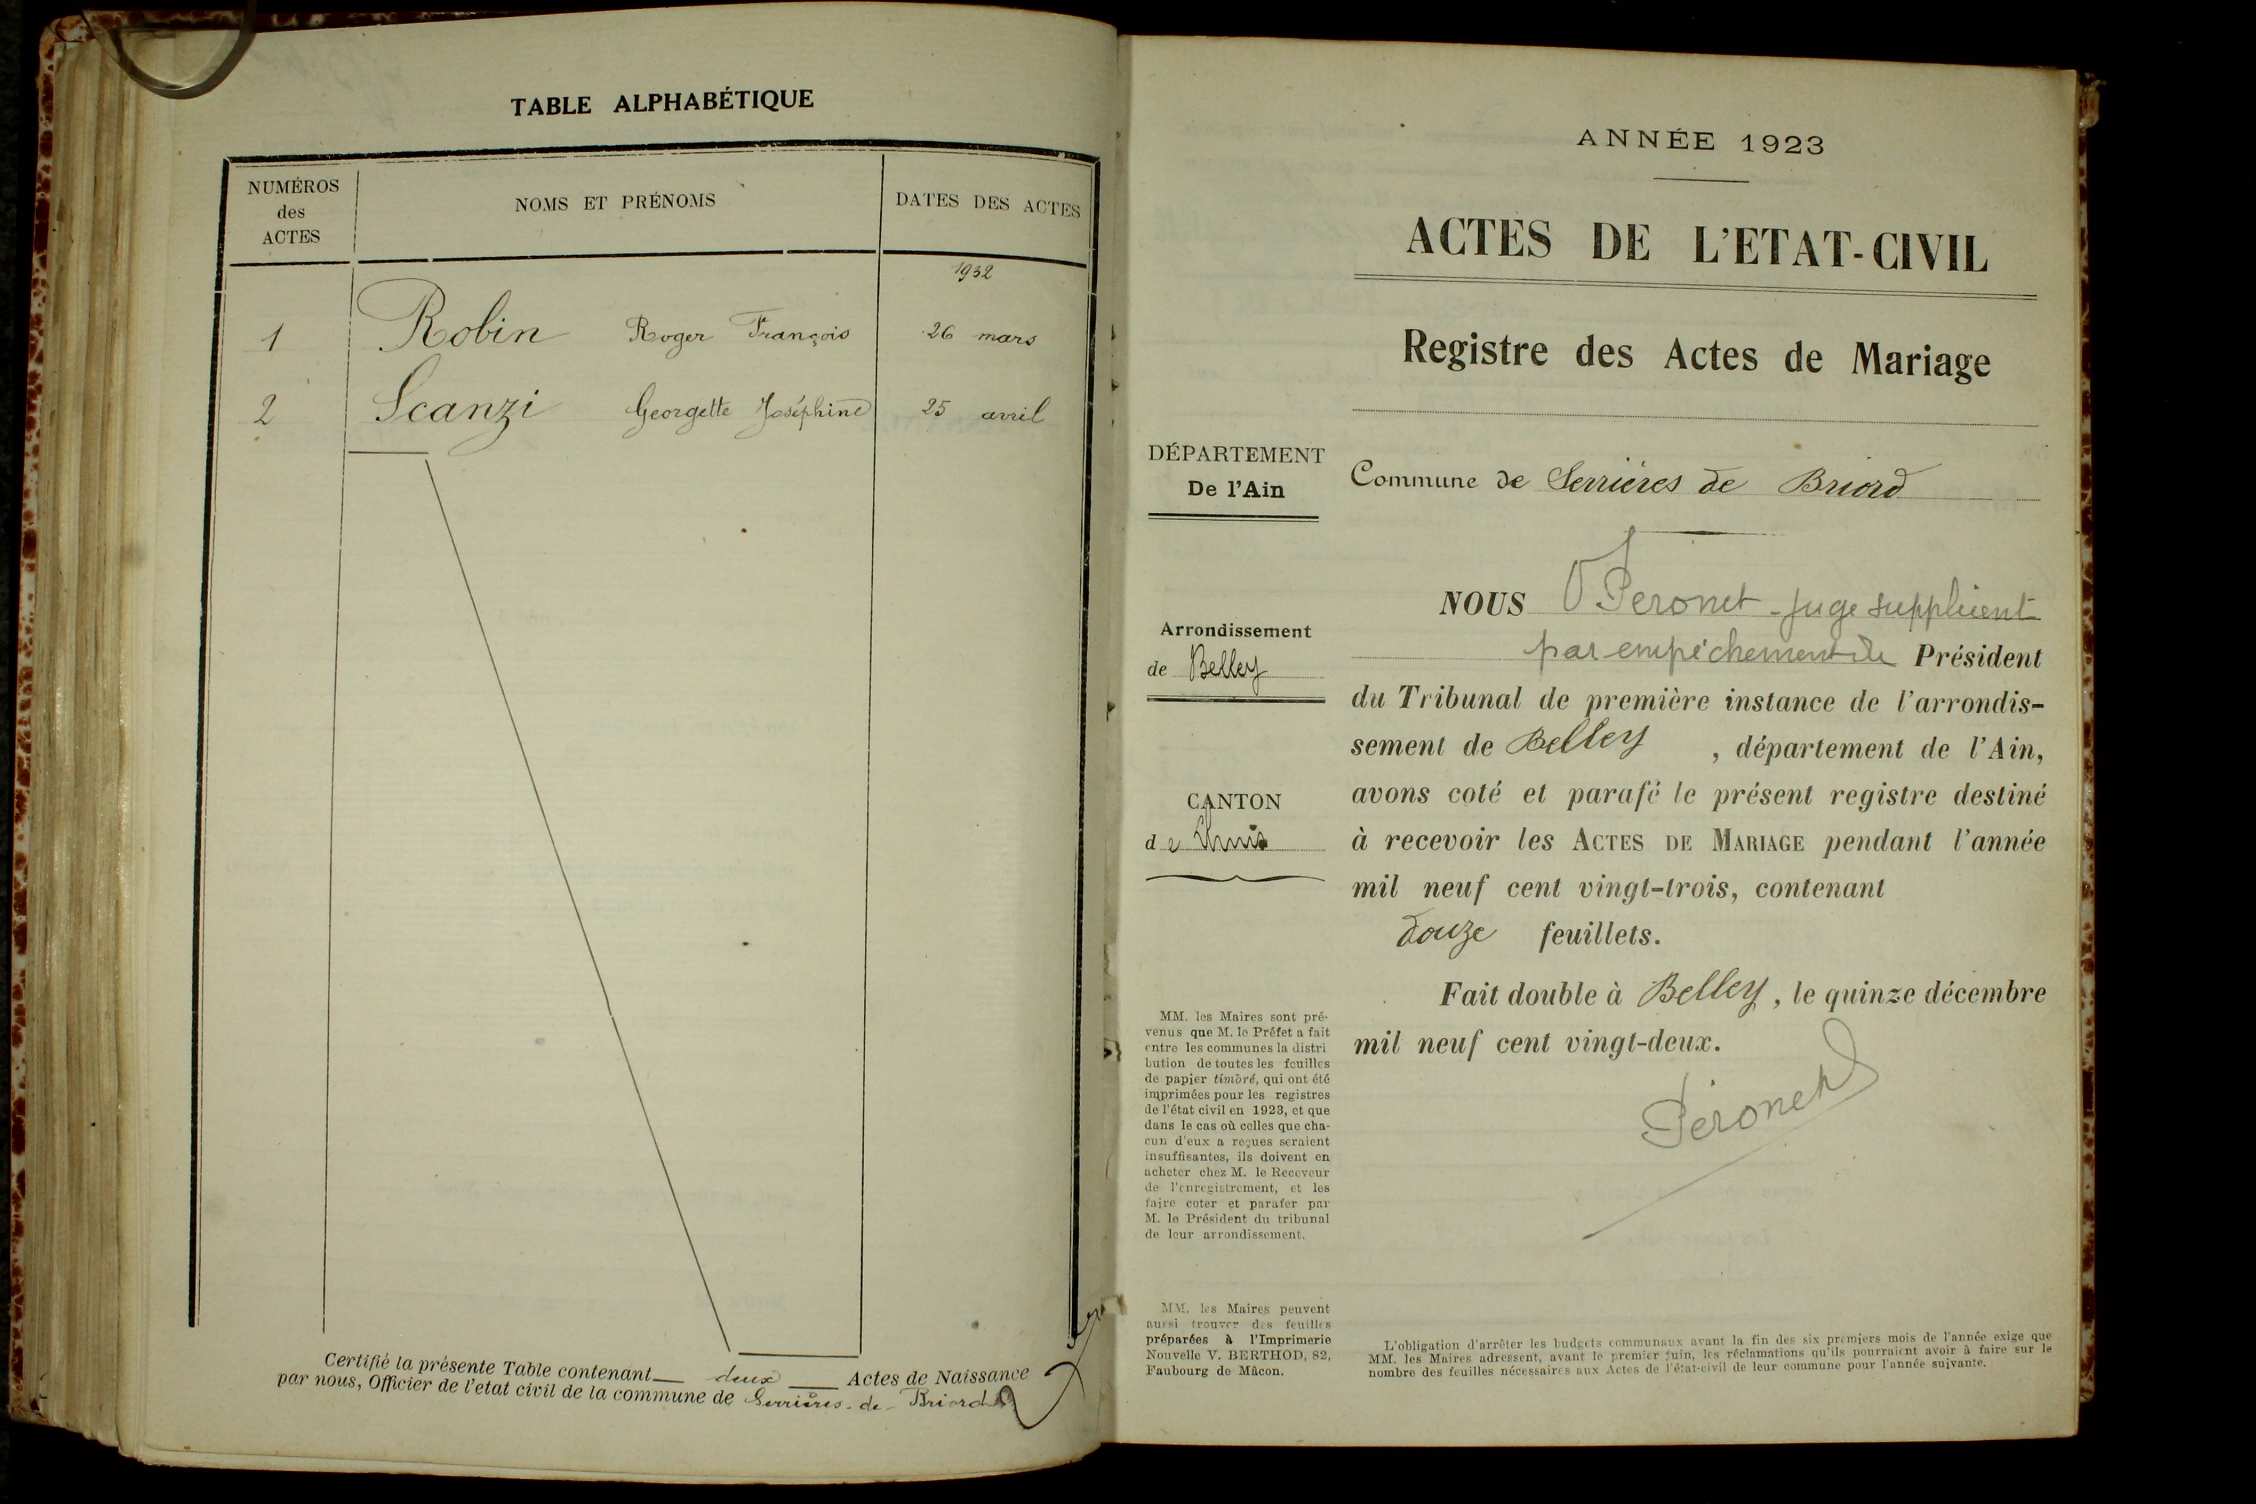 TABLE ALPHABÉTIQUE
NUMÉROS
des
ACTES
NOMS ET PRÉNOMS
DATES DES ACTES
1932
1 Robin Roger François 26 mars
2 Scanzi Georgette Joséphine 25 avril
Certifié la présente Table contenant deux Actes de Naissance
par nous, Officier de l'etat civil de la commune de Serrières-de-Briord
ANNÉE 1923
ACTES DE L'ETAT-CIVIL
Registre des Actes de Mariage
DÉPARTEMENT
De l'Ain
Commune de Serrières de Briord
Arrondissement
de Belley
CANTON
de Lhuis
NOUS Peronet juge suppléent
par empéchement du Président
du Tribunal de première instance de l'arrondis-
sement de Belley, département de l'Ain,
avons coté et parafé le présent registre destiné
à recevoir les ACTES DE MARIAGE pendant l'année
mil neuf cent vingt-trois, contenant
douze feuillets.
Fait double à Belley, le quinze décembre
mil neuf cent vingt-deux.
Péronet
MM. les Maires sont pré-
venus que M. le Préfet a fait
entre les communes la distri
bution de toutes les feuilles
de papier timbré, qui ont été
imprimées pour les registres
de l'état civil en 1923, et que
dans le cas où celles que cha-
cun d'eux a reçues seraient
insuffisantes, ils doivent en
acheter chez M. le Receveur
de l'enregistrement, et les
faire coter et parafer par
M. le Président du tribunal
de leur arrondissement.
MM. les Maires peuvent
aussi trouver des feuilles
préparées à l'Imprimerie
Nouvelle V. BERTHOD, 82,
Faubourg de Mâcon.
L'obligation d'arrêter les budgets communaux avant la fin des six premiers mois de l'année exige que
MM. les Maires adressent, avant le premier juin, les réclamations qu'ils pourraient avoir à faire sur le
nombre des feuilles nécessaires aux Actes de l'état-civil de leur commune pour l'année suivante.